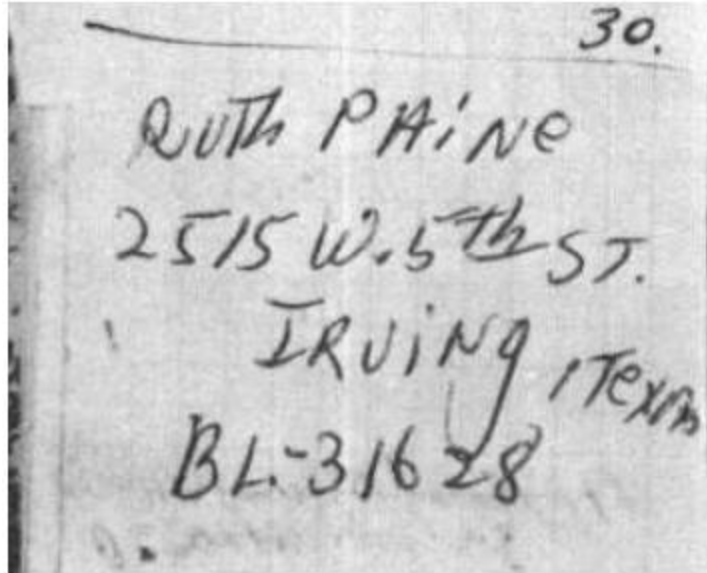 30.
RUTh PAiNe
2515 W. 5th ST.
IRViNg, TexAs
BL.-31628